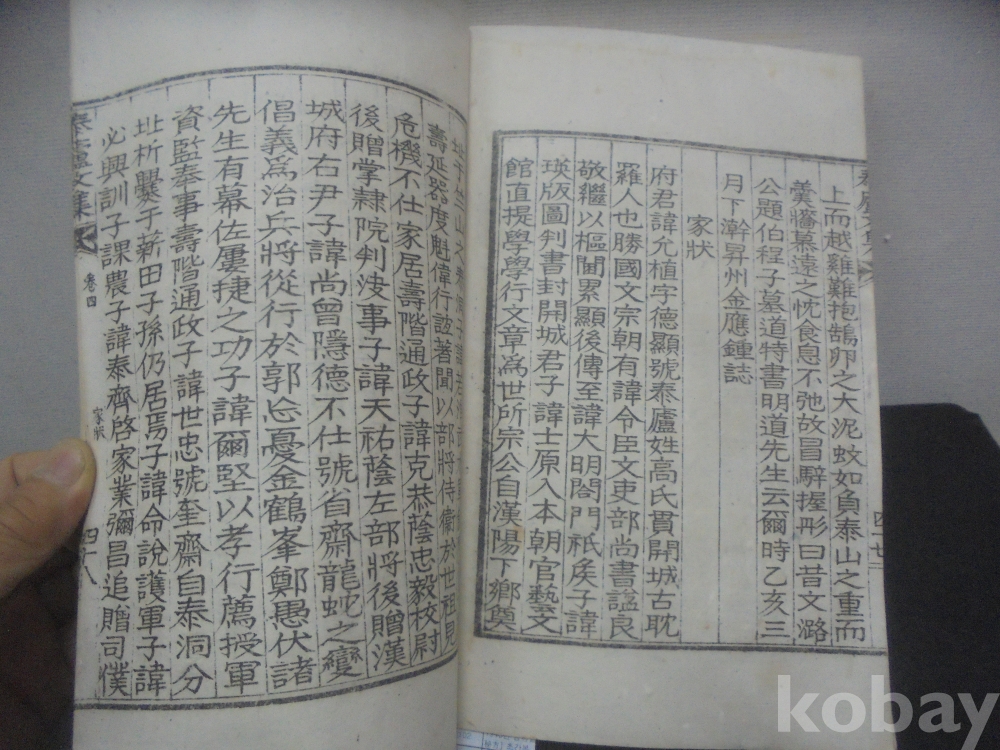 上而越雞難抱鵠卵之大泥蚊如負泰山之重而
羹墻慕遠之忱食息不弛故冒騂握形曰昔文潞
公題伯程子墓道特書明道先生云爾時乙亥三
月下澣昇州金應鍾誌
家狀
府君諱允植字德顯號泰廬姓高氏貫開城古耽
羅人也勝國文宗朝有諱令臣文吏部尚書謚良
敬繼以樞閫累顯後傳至諱大明閤門祗矦子諱
瑛版圖判書封開城君子諱士原入本朝官藝文
館直提學學行文章爲世所宗公自漢陽下鄉奠
四十七
壽延器度魁偉行誼著聞以部將侍衛於世祖見
危機不仕家居壽階通政子諱克恭蔭忠毅校尉
後贈掌隷院判決事子諱天祐蔭左部將後贈漢
城府右尹子諱尚曾隱德不仕號省齋龍蛇之變
倡義爲治兵將從行於郭忘憂金鶴峯鄭愚伏諸
先生有幕佐屢捷之功子諱爾堅以孝行薦授軍
資監奉事壽階通政子諱世忠號奎齋自泰洞分
址析爨于薪田子孫仍居焉子諱命說護軍子諱
必興訓子課農子諱泰齊啓家業彌昌追贈司僕
泰廬文集
卷四
家狀
四十八
kobay